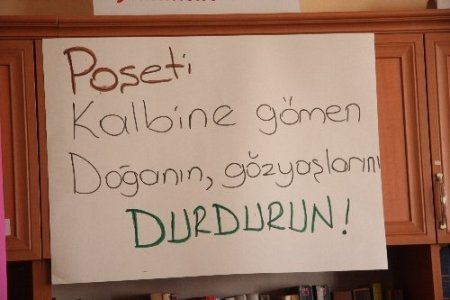 Poşeti
Kalbine gömen
Doğanın, gözyaşlarını
DURDURUN!